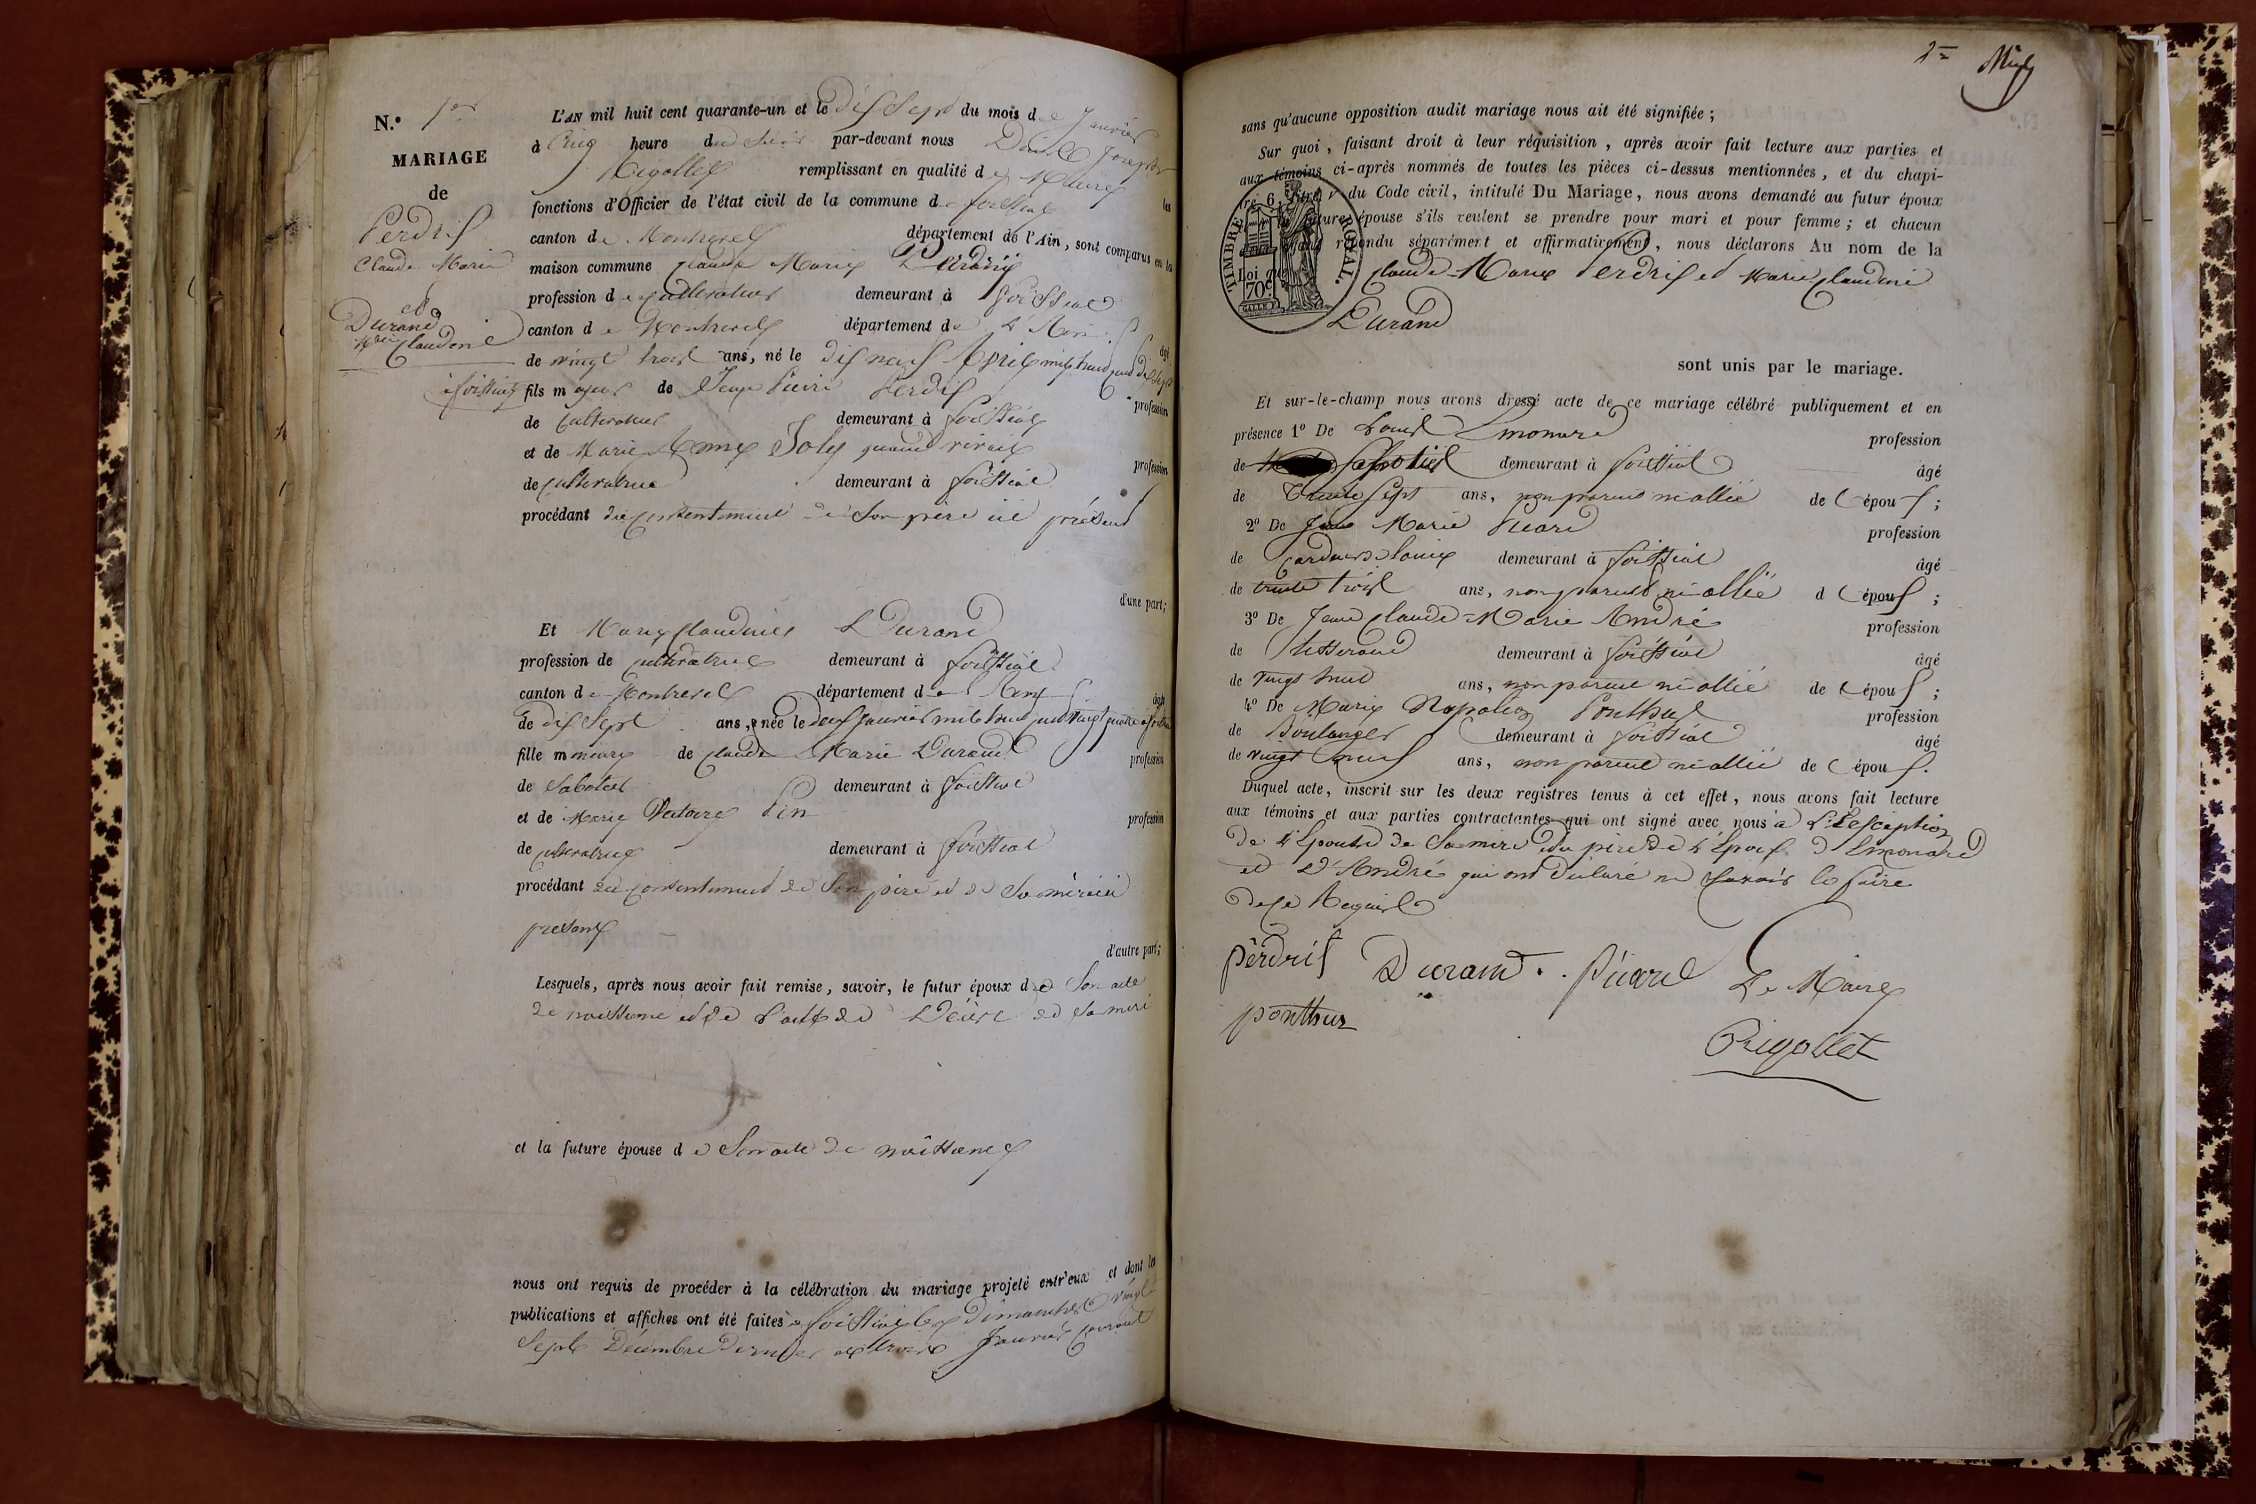 N.º 1er
MARIAGE
de
Perdrix
Claude Marie
et
Durand
Mrie Claudine
à foissiat
L'AN mil huit cent quarante-un et le dix Sept du mois de Janvier
à Cinq heure du Soir par-devant nous Joseph
Rigollet remplissant en qualité de Maire les
fonctions d'Officier de l'état civil de la commune de foissiat
canton de Montrevel département de l'Ain, sont comparus en la
maison commune Claude Marie Perdrix
profession de cultivateur demeurant à foissiat
canton de Montrevel département de L'Ain âgé
de vingt trois ans, né le dix neuf Avril mil huit cent dix sept
fils majeur de Jean Pierre Perdrix profession
de Cultivateur demeurant à foissiat
et de Marie Anne Joly quand vivait profession
de cultivatrice demeurant à foissiat
procédant du consentement de Son père ici présent
d'une part;
Et Marie Claudine Durand
profession de cultivatrice demeurant à foissiat
canton de Montrevel département de l'Ain âgée
de dix Sept ans, née le deux Janvier mil huit cent vingt quatre à foissiat
fille mineure de Claude Marie Durand profession
de Sabotier demeurant à foissiat
et de Marie Pin profession
de cultivatrice demeurant à foissiat
procédant du consentement de Son père et de Sa mère ici
présent
d'autre part;
Lesquels, après nous avoir fait remise, savoir, le futur époux de Son acte
de naissance et de l'acte de Décès de Sa mère
et la future épouse de Son acte de naissance
nous ont requis de procéder à la célébration du mariage projeté entr'eux et dont les
publications et affiches ont été faites à foissiat les dimanches vingt
Sept Décembre dernier et trois Janvier courant
2me
sans qu'aucune opposition audit mariage nous ait été signifiée;
Sur quoi, faisant droit à leur réquisition, après avoir fait lecture aux parties et
aux témoins ci-après nommés de toutes les pièces ci-dessus mentionnées, et du chapi-
tre 6, titre V du Code civil, intitulé Du Mariage, nous avons demandé au futur époux
future épouse s'ils veulent se prendre pour mari et pour femme; et chacun
répondu séparément et affirmativement, nous déclarons Au nom de la
TIMBRE ROYAL.
Loi
70c
Claude Marie Perdrix et Marie Claudine
Durand
sont unis par le mariage.
Et sur-le-champ nous avons dressé acte de ce mariage célébré publiquement et en
présence 1º De Louis Emonard profession
de Sabotier demeurant à foissiat âgé
de Trente Sept ans, non parent ni allié de l'époux;
2º De Jean Marie Picard profession
de demeurant à foissiat âgé
de trente trois ans, non parent ni allié de l'époux;
3º De Jean Claude Marie André profession
de tisserand demeurant à foissiat âgé
de vingt huit ans, non parent ni allié de l'époux;
4º De Marie Napoléon Ponthus profession
de Boulanger demeurant à foissiat âgé
de vingt neuf ans, non parent ni allié de l'époux.
Duquel acte, inscrit sur les deux registres tenus à cet effet, nous avons fait lecture
aux témoins et aux parties contractantes qui ont signé avec nous à L'Exception
de L'Epouse de Sa mère du père de L'Epoux d'Emonard
et D'André qui ont déclaré ne savoir le faire
de ce Requis
perdrix Durand Picard Le Maire
ponthus
Rigollet